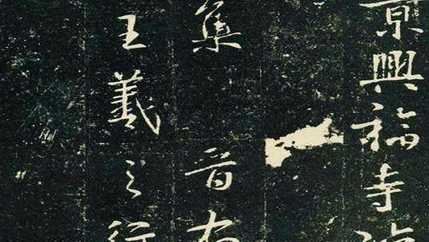 京興福寺
集 晉右
王羲之行